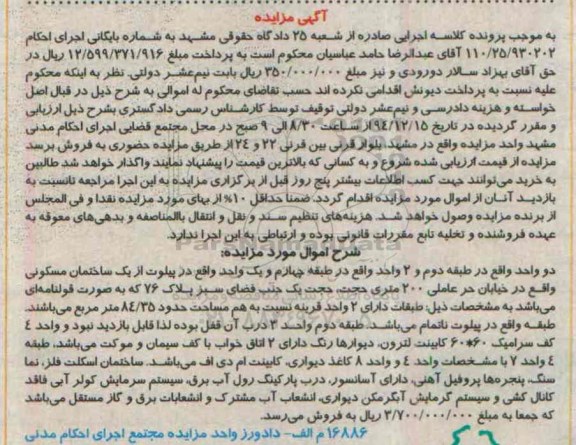 آگهی مزایده
به موجب پرونده کلاسه اجرایی صادره از شعبه ۲۵ دادگاه حقوقی مشهد به شماره بایگانی اجرای احکام
۱۱۰/۲۵/۹۳۰۲۰۲ آقای عبدالرضا حامد عباسیان محکوم است به پرداخت مبلغ ۱۲/۵۹۹/۳۷۱/۹۱۶ ریال در
حق آقای بهزاد سالار دورودی و نیز مبلغ ۳۵۰/۰۰۰/۰۰۰ ریال بابت نیم‌عشر دولتی. نظر به اینکه محکوم
علیه نسبت به پرداخت دیونش اقدامی نکرده اند حسب تقاضای محکوم له اموالی به شرح ذیل در قبال اصل
خواسته و هزینه دادرسی و نیم‌عشر دولتی توقیف توسط کارشناس رسمی دادگستری بشرح ذیل ارزیابی
و مقرر گردیده در تاریخ ۹۴/۱۲/۱۵ از ساعت ۸/۳۰ الی ۹ صبح در محل مجتمع قضایی اجرای احکام مدنی
مشهد واحد مزایده واقع در مشهد بلوار قرنی بین قرنی ۲۲ و ۲۴ از طریق مزایده حضوری به فروش برسد
مزایده از قیمت ارزیابی شده شروع و به کسانی که بالاترین قیمت را پیشنهاد نمایند واگذار خواهد شد طالبین
به خرید می‌توانند جهت کسب اطلاعات بیشتر پنج روز قبل از برگزاری مزایده به این اجرا مراجعه تا نسبت به
بازدید آنان از اموال مورد مزایده اقدام گردد. ضمنا حداقل ۱۰٪ از بهای مورد مزایده نقدا و فی المجلس
از برنده مزایده وصول خواهد شد. هزینه‌های تنظیم سند و نقل و انتقال بالمناصفه و بدهی‌های معوقه به
عهده فروشنده و تخلیه تابع مقررات قانونی بوده و ارتباطی به این اجرا ندارد.
شرح اموال مورد مزایده:
دو واحد واقع در طبقه دوم و ۲ واحد واقع در طبقه چهارم و یک واحد واقع در پیلوت از یک ساختمان مسکونی
واقع در خیابان حر عاملی ۲۰۰ متری حجت، حجت یک جنب فضای سبز پلاک ۷۶ که به صورت قولنامه‌ای
می‌باشد به مشخصات ذیل: طبقات دارای ۲ واحد قرینه نسبت به هم مساحت حدود ۸۴/۳۵ متر مربع می‌باشند.
طبقه واقع در پیلوت ناتمام می‌باشد. طبقه دوم واحد ۳ درب آن قفل بوده لذا قابل بازدید نبود و واحد ۴
کف سرامیک ۶۰*۶۰ کابینت لترون، دیوارها رنگ دارای ۲ اتاق خواب با کف سیمان و موکت می‌باشد، طبقه
۴ واحد ۷ با مشخصات واحد ۴ و واحد ۸ کاغذ دیواری، کابینت ام دی اف می‌باشد. ساختمان اسکلت فلز، نما
سنگ، پنجره‌ها پروفیل آهنی، دارای آسانسور، درب پارکینگ رول آب برق، سیستم سرمایش کولر آبی فاقد
کانال کشی و سیستم گرمایش آبگرمکن دیواری، انشعاب آب مشترک و انشعابات برق و گاز مستقل می‌باشد
که جمعا به مبلغ ۳/۷۰۰/۰۰۰/۰۰۰ ریال به فروش می‌رسد.
۱۶۸۸۶ م الف- دادورز واحد مزایده مجتمع اجرای احکام مدنی